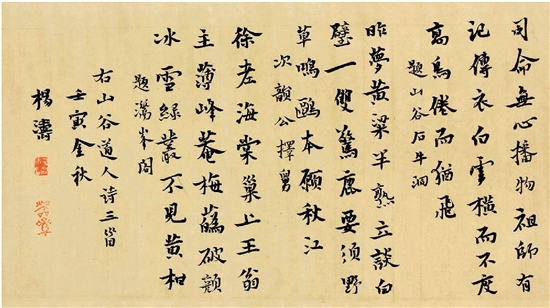 司命無心播物祖師有
记傳衣白雲橫而不度
高鳥倦而猶飛
題山谷石牛洞
昨夢黃梁半熟立談白
璧一雙驚鹿要須野
草鳴鷗本願秋江
次韻公擇舅
徐老海棠巢上王翁
主薄峰菴梅蘤破顏
冰雪綠叢不見黃柑
題灊峯閣
右山谷道人诗三首
壬寅金秋
楊濤